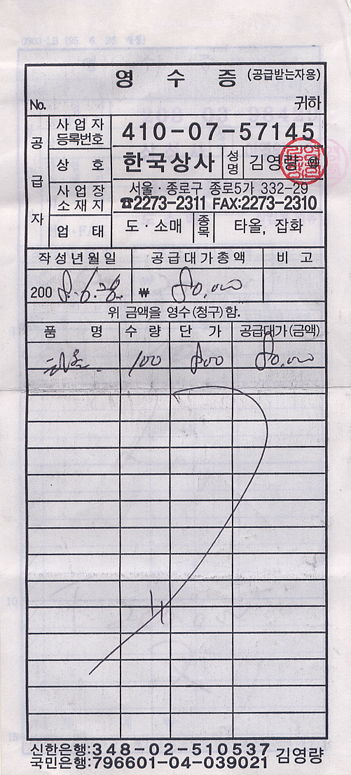 영 수 증 (공급받는자용)
No. 귀하
공급자
사업자등록번호 410-07-57145
상 호 한국상사 성명 김영량 ㊞
사업장소재지 서울·종로구 종로5가 332-29
☎2273-2311 FAX:2273-2310
업 태 도·소매 종목 타올, 잡화
작성년월일 공급대가총액 비 고
200 8. 6. ₩ 80,000
위 금액을 영수(청구)함.
품 명 수 량 단 가 공급대가(금액)
타올 100 800 80,000
신한은행:348-02-510537 김영량
국민은행:796601-04-039021